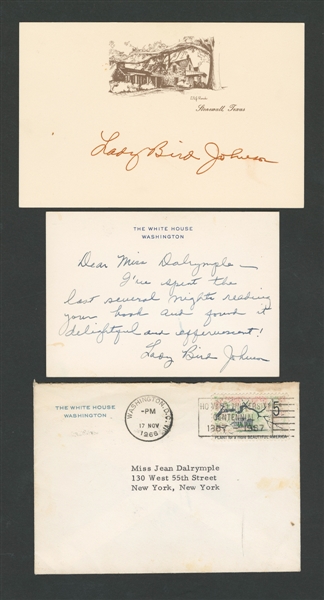 Stonewall, Texas
Lady Bird Johnson
THE WHITE HOUSE
WASHINGTON
Dear Miss Dalrymple —
I've spent the
last several nights reading
your book and found it
delightful and effervescent!
Lady Bird Johnson
THE WHITE HOUSE
WASHINGTON
WASHINGTON, D.C.
-PM
17 NOV
1966
HOWARD UNIVERSITY
CENTENNIAL
1867 1967
5
PLANT for a more BEAUTIFUL AMERICA
Miss Jean Dalrymple
130 West 55th Street
New York, New York